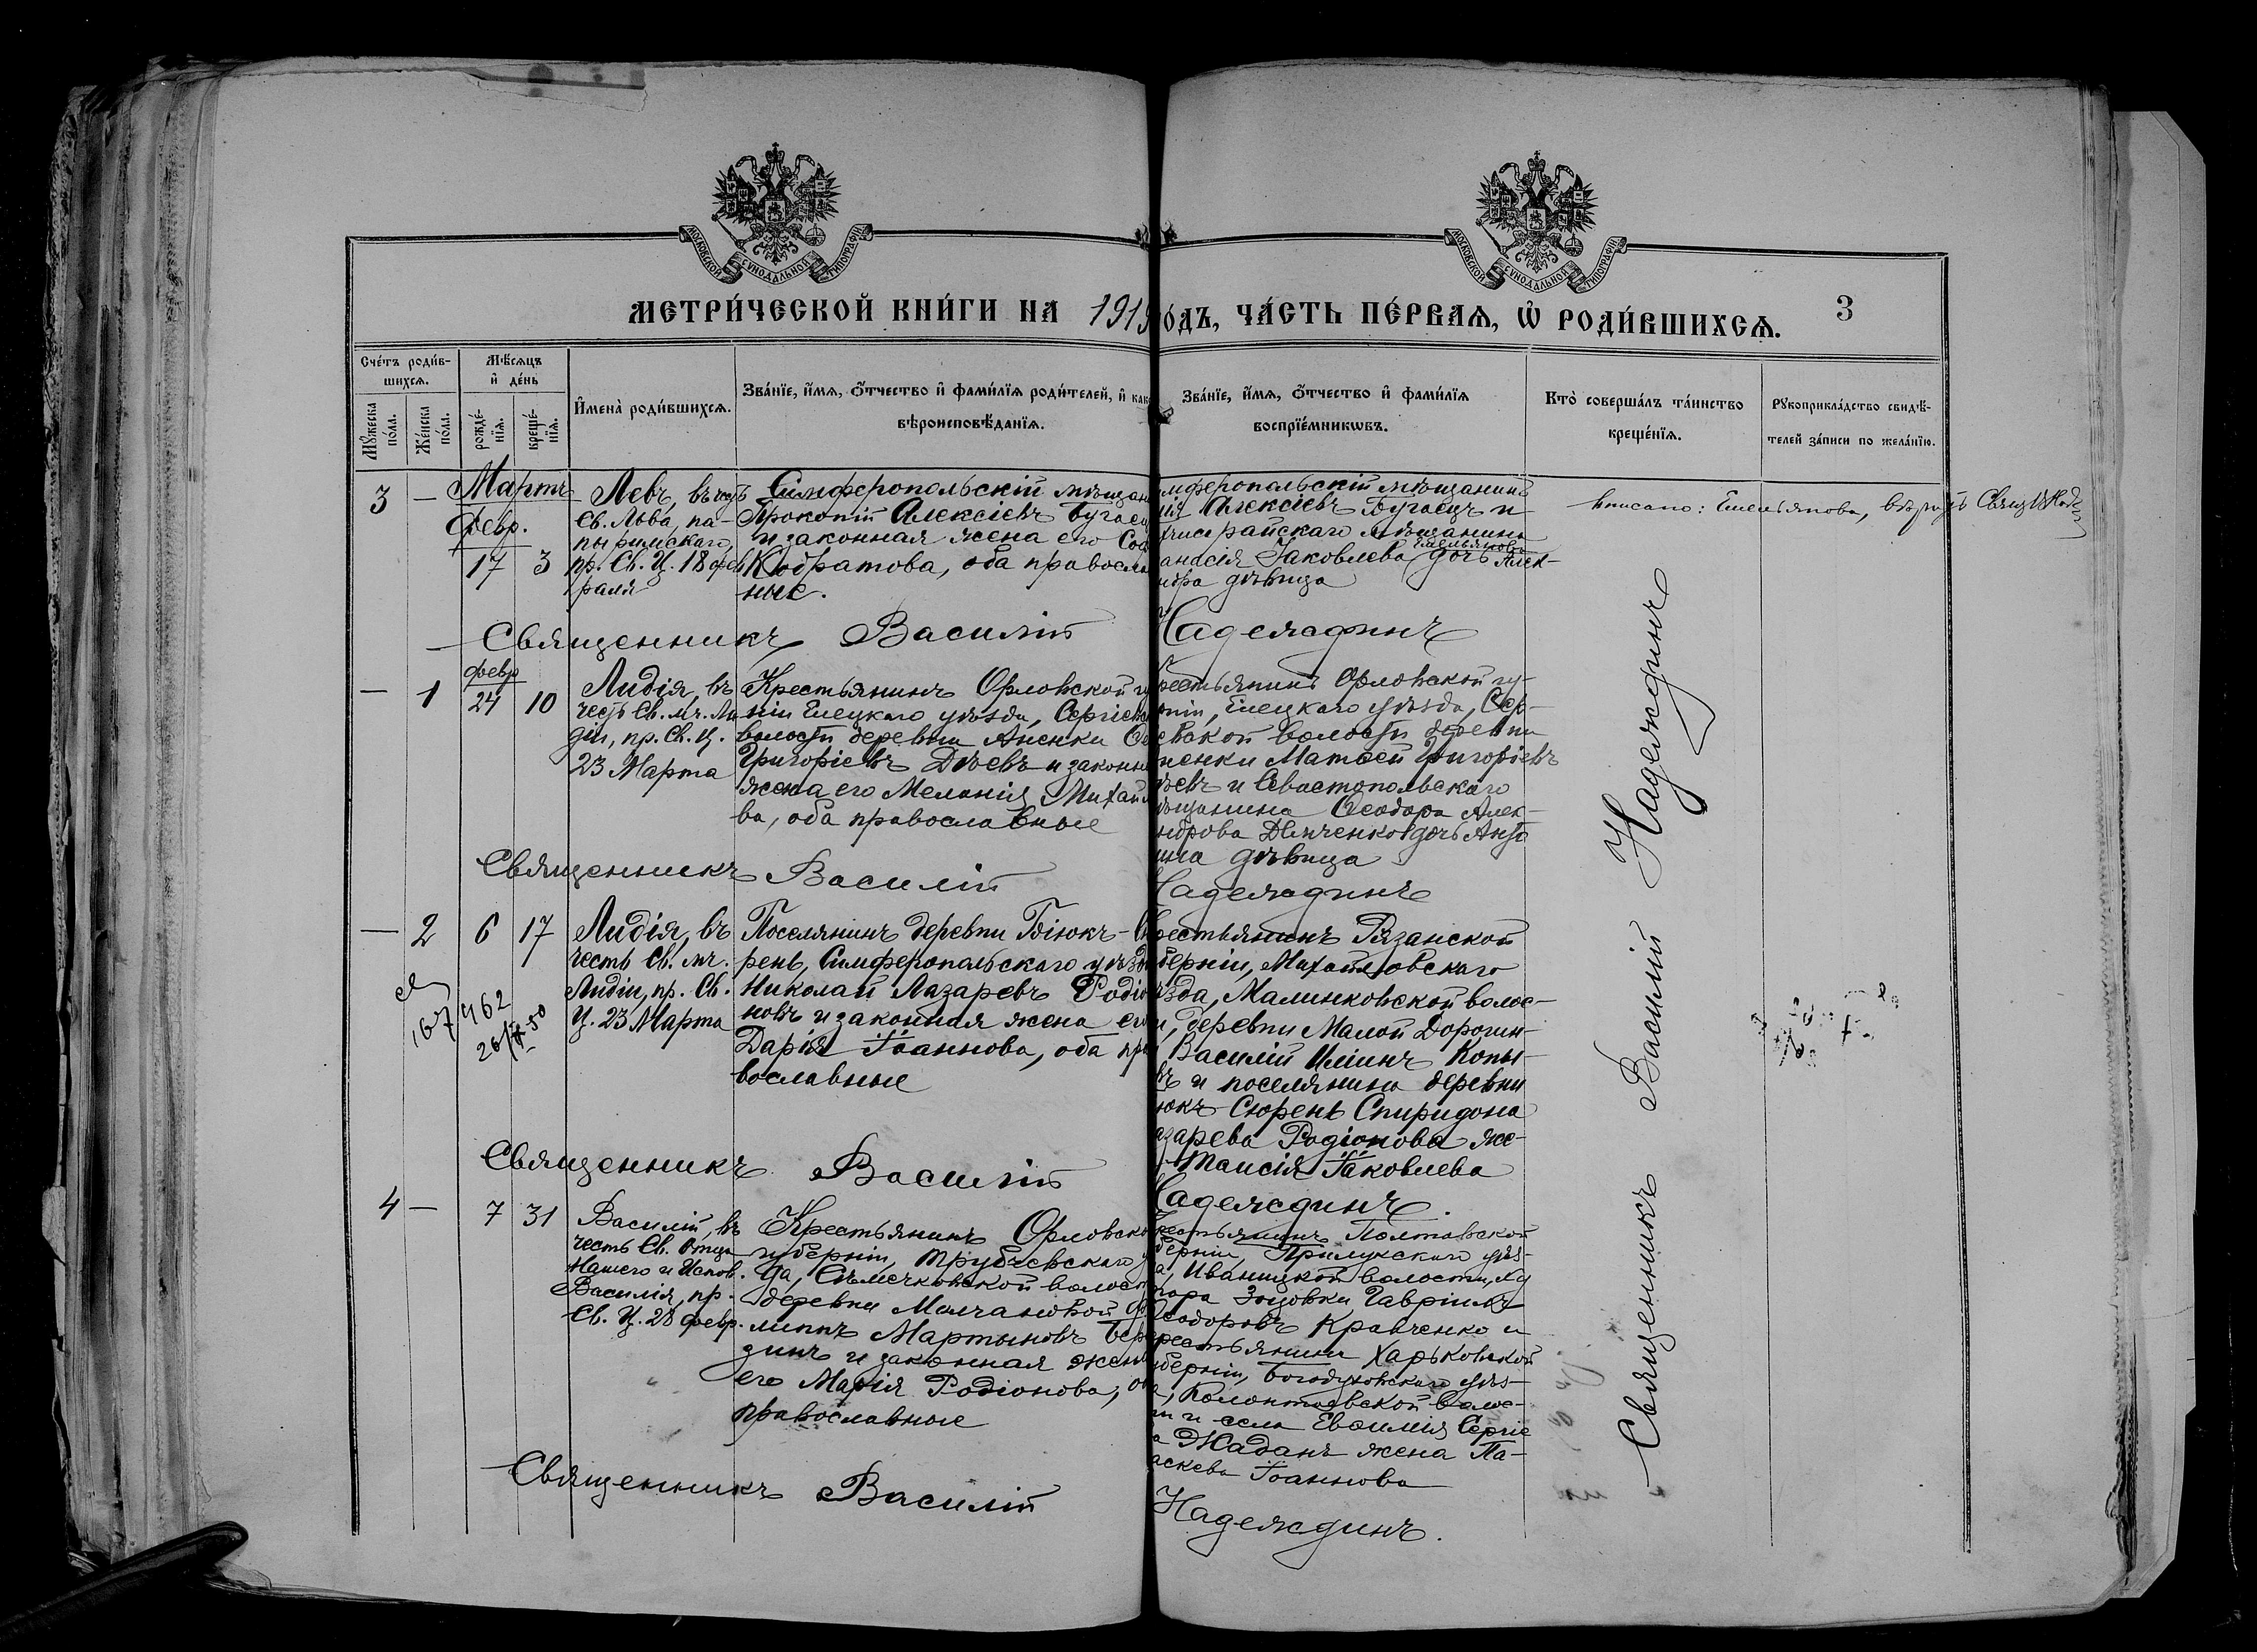 МОСКОВСКОЙ СУНОДАЛЬНОЙ ТИПОГРАФІИ
МОСКОВСКОЙ СУНОДАЛЬНОЙ ТИПОГРАФІИ
МЕТРИ́ЧЕСКОЙ КНИ́ГИ НА 1919
О́ДЪ, ЧА́СТЬ ПЕ́РВАѦ, Ѡ҆ РОДИ́ВШИХСѦ.
3
Сче́тъ роди́в-
шихсѧ.
Мꙋ́жеска по́ла.
Же́нска по́ла.
Мѣ́сѧцъ
и҆ де́нь
рожде́-
нїѧ.
креще́-
нїѧ.
И҆мена̀ роди́вшихсѧ.
Зва́нїе, и҆́мѧ, о҆́тчество и҆ фами́лїѧ роди́телей, и҆ как
вѣроисповѣ́данїѧ.
Зва́нїе, и҆́мѧ, о҆́тчество и҆ фами́лїѧ
воспрїе́мникѡвъ.
Кто̀ соверша́лъ та́инство
креще́нїѧ.
Рꙋкоприкла́дство свидѣ́-
телей за́писи по жела́нїю.
3 —
Мартъ
Февр.
17 3
Левъ, въ честь
Св. Льва, па-
пы римскаго,
пр. Св. Ц. 18 фев
раля
Симферопольскій мѣщан
Прокопій Алексіевъ Бугаец
и законная жена его Соф
Кодратова, оба правосла
ные.
мферопольскій мѣщанинъ
Алексіевъ Бугаецъ и
райскаго мѣщанина
анасія Іаковлева Емельянова дочь Алек-
ндра дѣвица
Вписано: Емельянова,
Священникъ Василій
Надеждинъ
— 1
февр
24 10
Лидія, въ
честь Св. мч. Ли
діи, пр. Св. Ц.
23 Марта
Крестьянинъ Орловской гу
ніи Елецкаго уѣзда, Сергіевс
волости деревни Аненки
Григоріевъ Дѣевъ и законн
жена его Меланія Михайл
ва, оба православные
рестьянинъ Орловской гу-
рніи, Елецкаго уѣзда, Сер-
евской волости деревни
ненки Матѳей Григоріевъ
ѣевъ и Севастопольскаго
ѣщанина Ѳеодора Алек-
ндрова Демченков дочь Анто
ина дѣвица
Священникъ Василій
Надеждинъ
— 2
6 17
Лидія, въ
честь Св. мч.
Лидіи, пр. Св.
Ц. 23 Марта
Поселянинъ деревни Біюкъ-С
рень, Симферопольскаго уѣзд
Николай Лазаревъ Родіо
новъ и законная жена его
Дарія Іоаннова, оба пра
вославные
рестьянинъ Рязанской
берніи, Михайловскаго
ѣзда, Малинковской волос-
и, деревни Малой Дорогин-
Василій Иліинъ Копы-
въ и поселянина деревни
юкъ-Сюрень Спиридона
азарева Родіонова же-
Таисія Іаковлева
Священникъ Василій
Надеждинъ.
4 —
7 31
Василій, въ
честь Св. Отца
Нашего и Испов.
Василія, пр.
Св. Ц. 28 февр.
Крестьянинъ Орловско
губерніи, Трубчевскаго у
да, Сѣмечковской волост
деревни Молчановой Фи
липпъ Мартыновъ Бер
зинъ и законная жена
его Марія Родіонова, об
православные
рестьянинъ Полтавской
берніи, Прилукскаго уѣз-
а, Иваницкой волости, ху
тора Зоцовки, Гавріилъ
Ѳеодоровъ Кравченко и
рестьянина Харьковской
уберніи, Богодуховскаго уѣз-
а, Колонтаевской волос-
ти и села Евѳимія Сергіе
а Жаданъ жена Па-
аскева Іоаннова
Священникъ Василій
Надеждинъ.
Священникъ Василій Надеждинъ